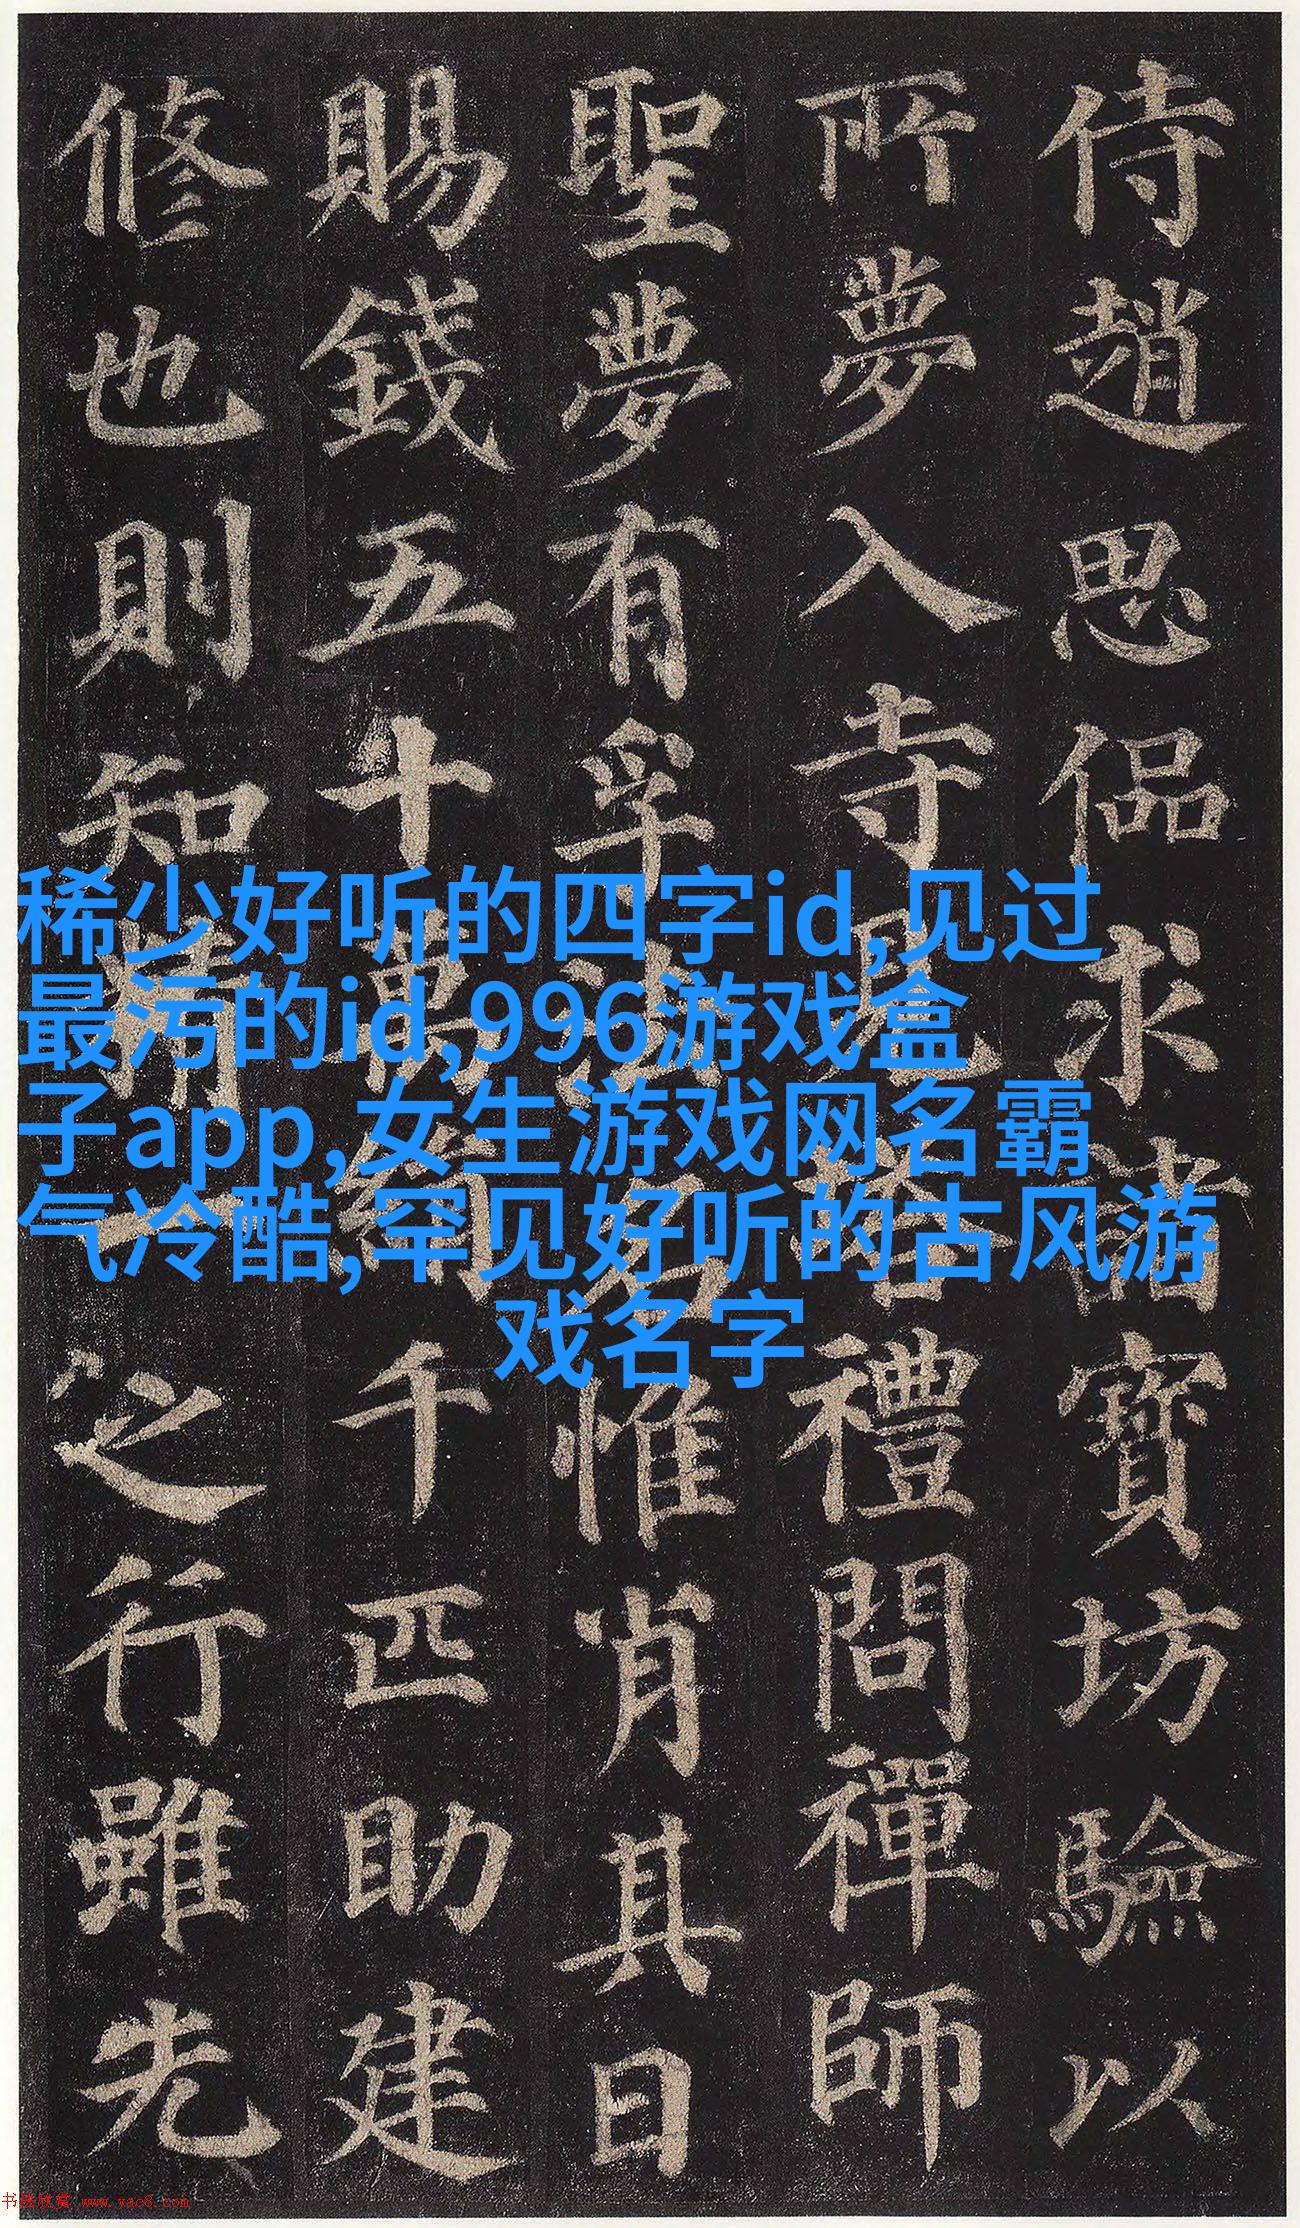 侍趙思偘求諸寶坊驗以
所夢入寺見塔禮問禪師
聖夢有孚法名惟肖其日
賜錢五十萬絹千匹助建
修也則知精一之行雖先
稀少好听的四字id,见过
最污的id,996游戏盒
子app,女生游戏网名霸
气冷酷,罕见好听的古风游
戏名字
书法欣赏 www.yac8.com